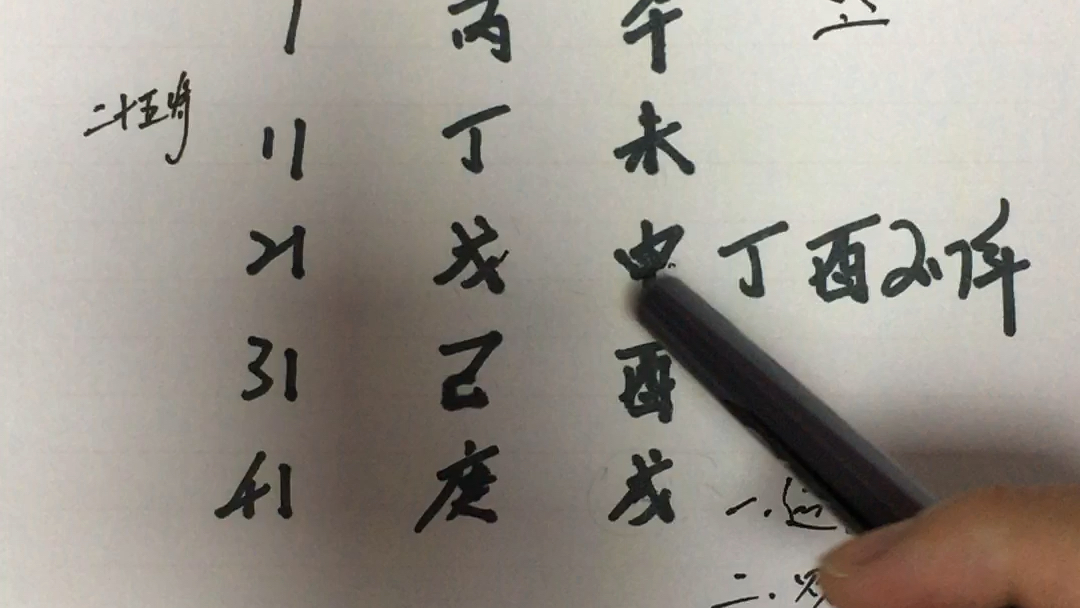 1 丙 午
二十五时
11 丁 未
21 戊 申 丁酉 21年
31 己 酉
41 庚 戌
一.运
二.